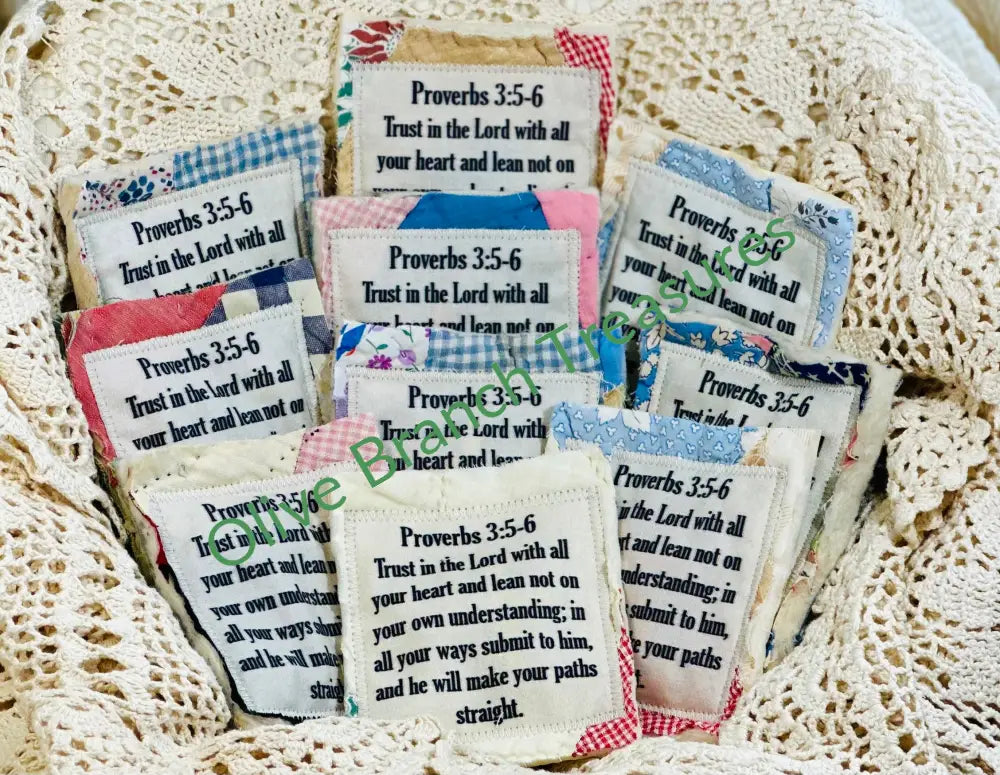 Proverbs 3:5-6
Trust in the Lord with all
your heart and lean not on
Proverbs 3:5-6
Trust in the Lord with all
lean not on
Proverbs 3:5-6
Trust in the Lord with all
your heart and lean not on
Proverbs 3:5-6
Trust in the Lord with all
your heart and lean not on
Proverbs 3:5-6
Trust in the Lord with all
your heart and lean not on
Proverbs 3:5-6
Trust in the Lord with all
your heart and
Proverbs 3:5-6
Trust in the
Proverbs 3:5-6
Trust in the Lord with
your heart and lean
your own
all your ways
and he will make
Proverbs 3:5-6
in the Lord with all
and lean not on
understanding; in
submit to him,
your paths
Proverbs 3:5-6
Trust in the Lord with all
your heart and lean not on
your own understanding; in
all your ways submit to him,
and he will make your paths
straight.
Olive Branch Treasures